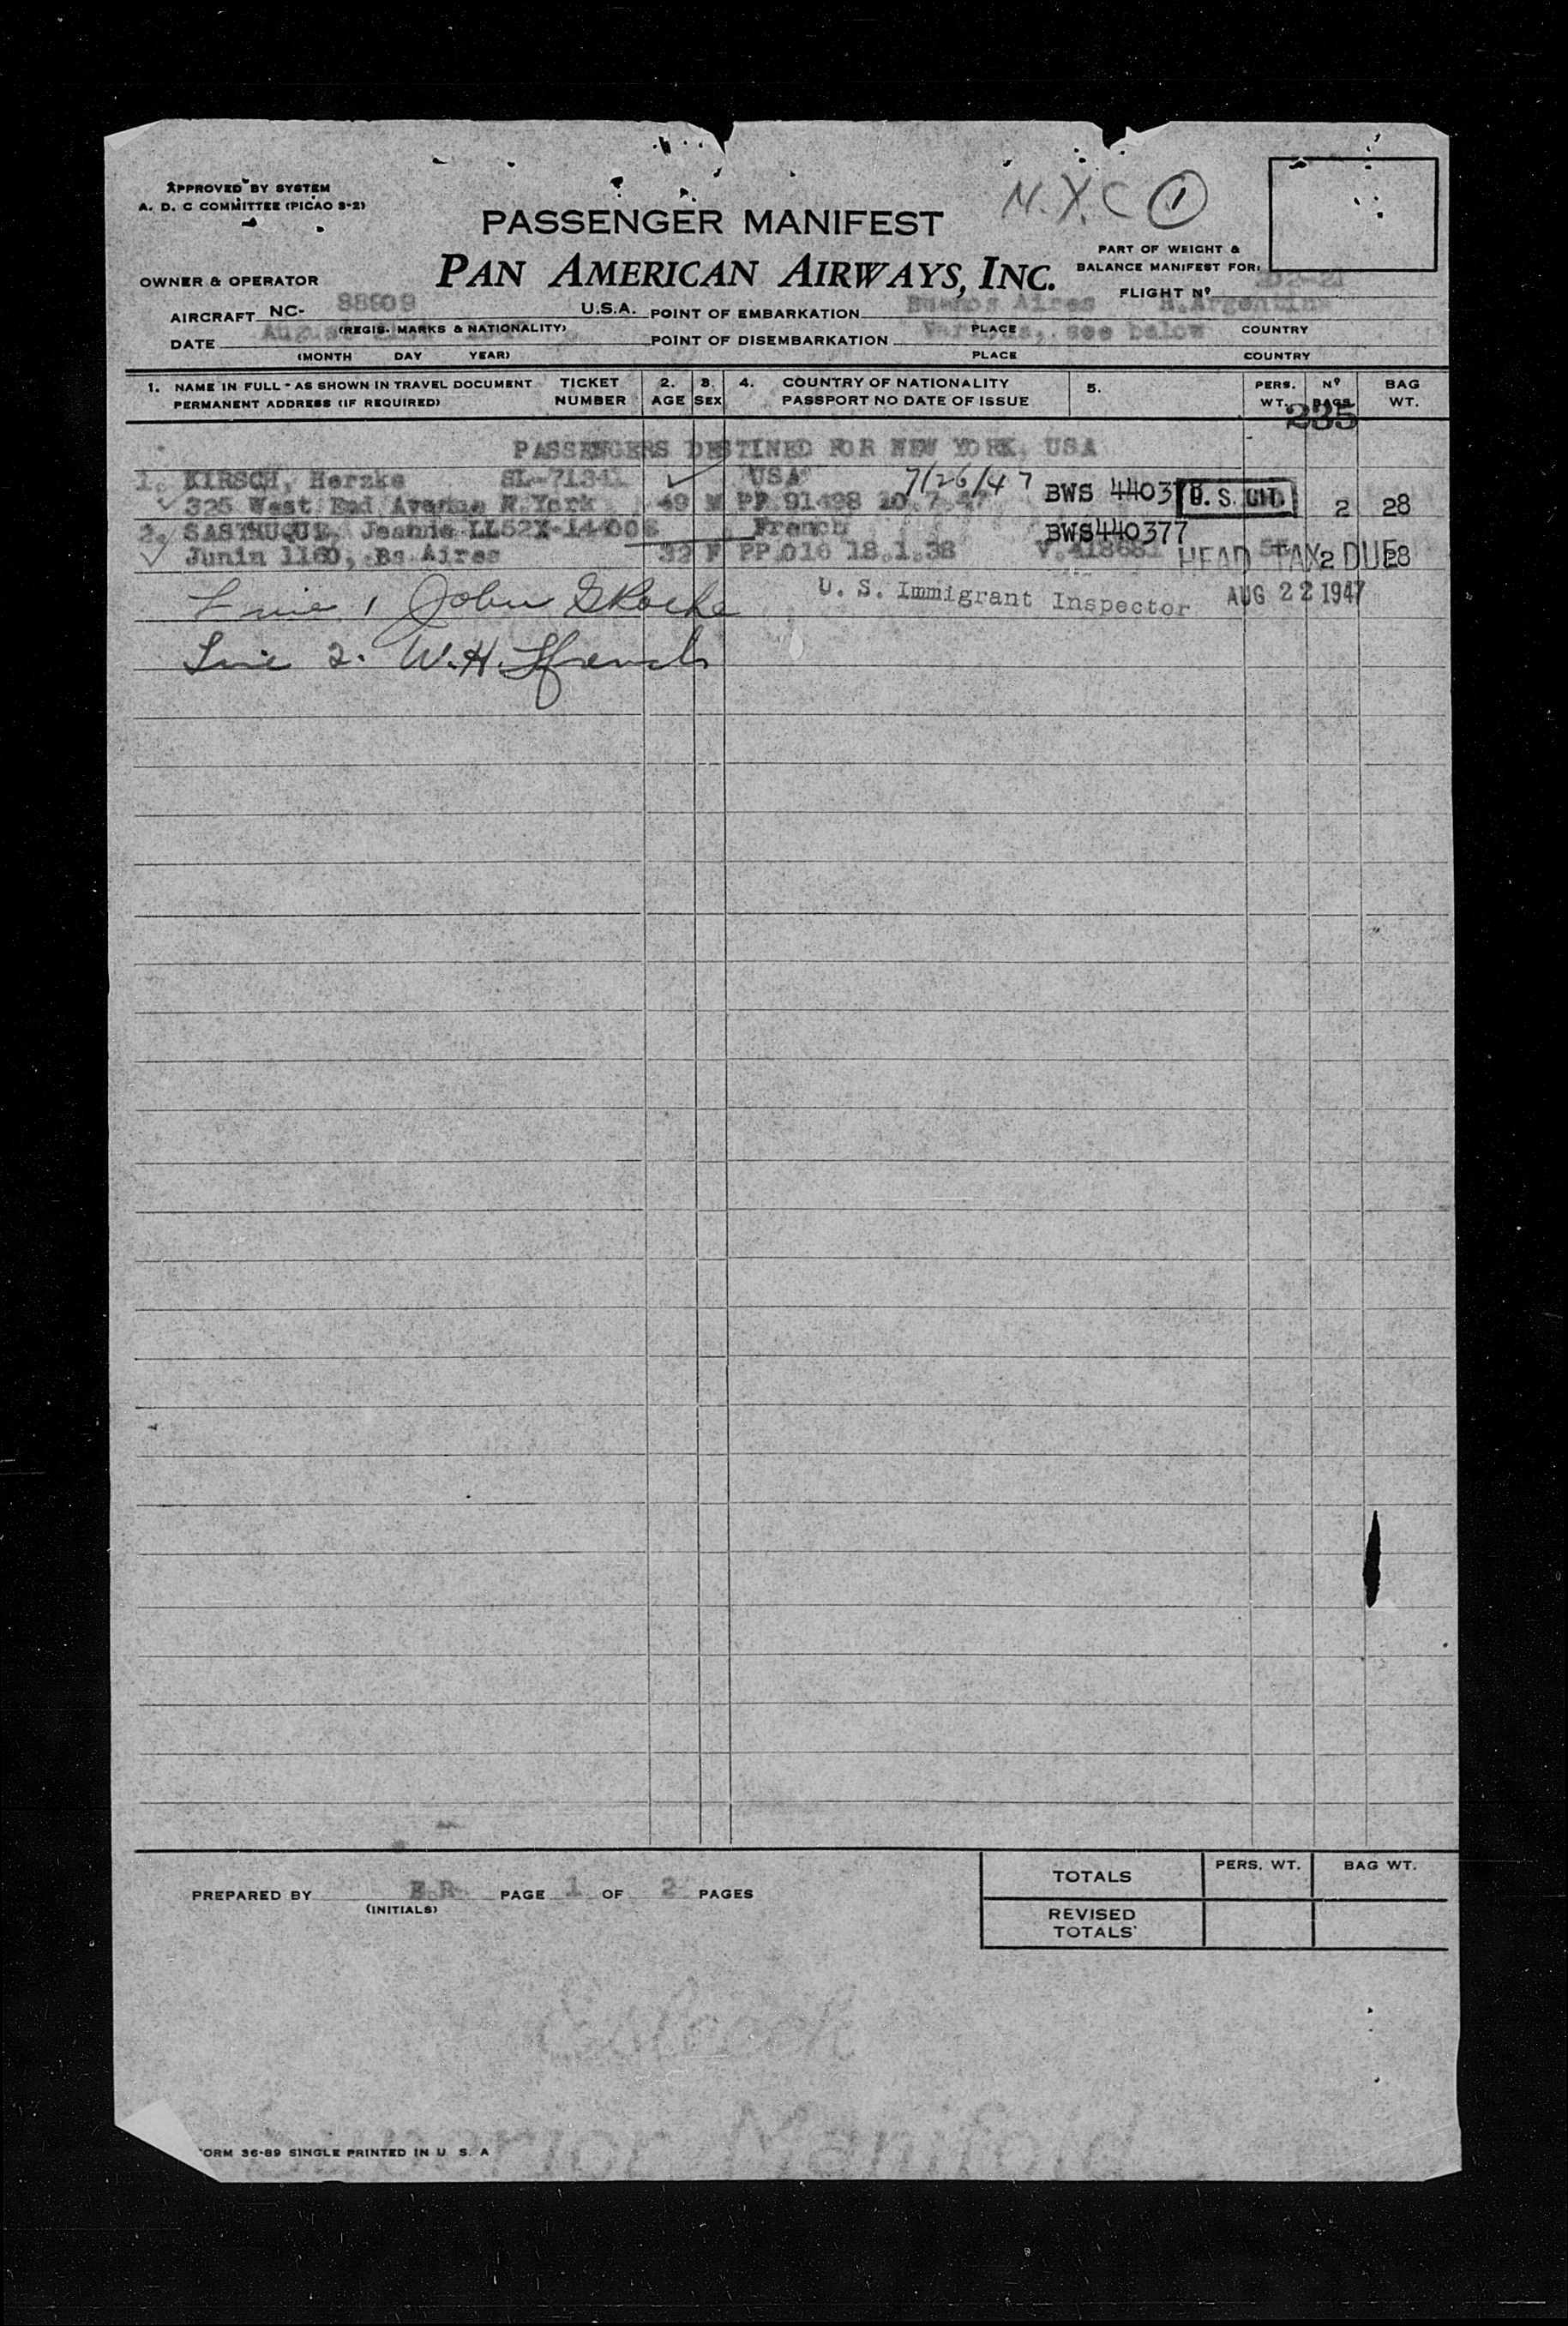 APPROVED BY SYSTEM
A. D. C COMMITTEE (PICAO 3-2)
N.Y.C ①
PASSENGER MANIFEST
PAN AMERICAN AIRWAYS, INC.
PART OF WEIGHT &
BALANCE MANIFEST FOR:
OWNER & OPERATOR
FLIGHT Nº 202-21
AIRCRAFT NC- 88909 U.S.A. POINT OF EMBARKATION Buenos Aires R.Argentina
(REGIS. MARKS & NATIONALITY) PLACE COUNTRY
DATE August POINT OF DISEMBARKATION Various, see below
(MONTH DAY YEAR) PLACE COUNTRY
1. NAME IN FULL - AS SHOWN IN TRAVEL DOCUMENT TICKET 2. 3. 4. COUNTRY OF NATIONALITY 5. PERS. Nº BAG
PERMANENT ADDRESS (IF REQUIRED) NUMBER AGE SEX PASSPORT NO DATE OF ISSUE WT. BAGS WT.
235
PASSENGERS DESTINED FOR NEW YORK, USA
1. KIRSCH, Herzke SL-71341 USA 7/26/47
325 West End Avenue N.York 49 M PP 91498 10.7.47 BWS 440378 U. S. CIT. 2 28
2. SASTHUQUE, Jeanne LL52X-144006 French BWS440377
Junin 1160, Bs Aires 32 F PP.016 18.1.38 V.418681 HEAD TAX DUE 2 28
Line 1 John G Roche U. S. Immigrant Inspector AUG 22 1947
Line 2. W.H.
PREPARED BY E.R. PAGE 1 OF 2 PAGES
(INITIALS)
TOTALS PERS. WT. BAG WT.
REVISED
TOTALS
FORM 36-89 SINGLE PRINTED IN U. S. A
Superior Manifold